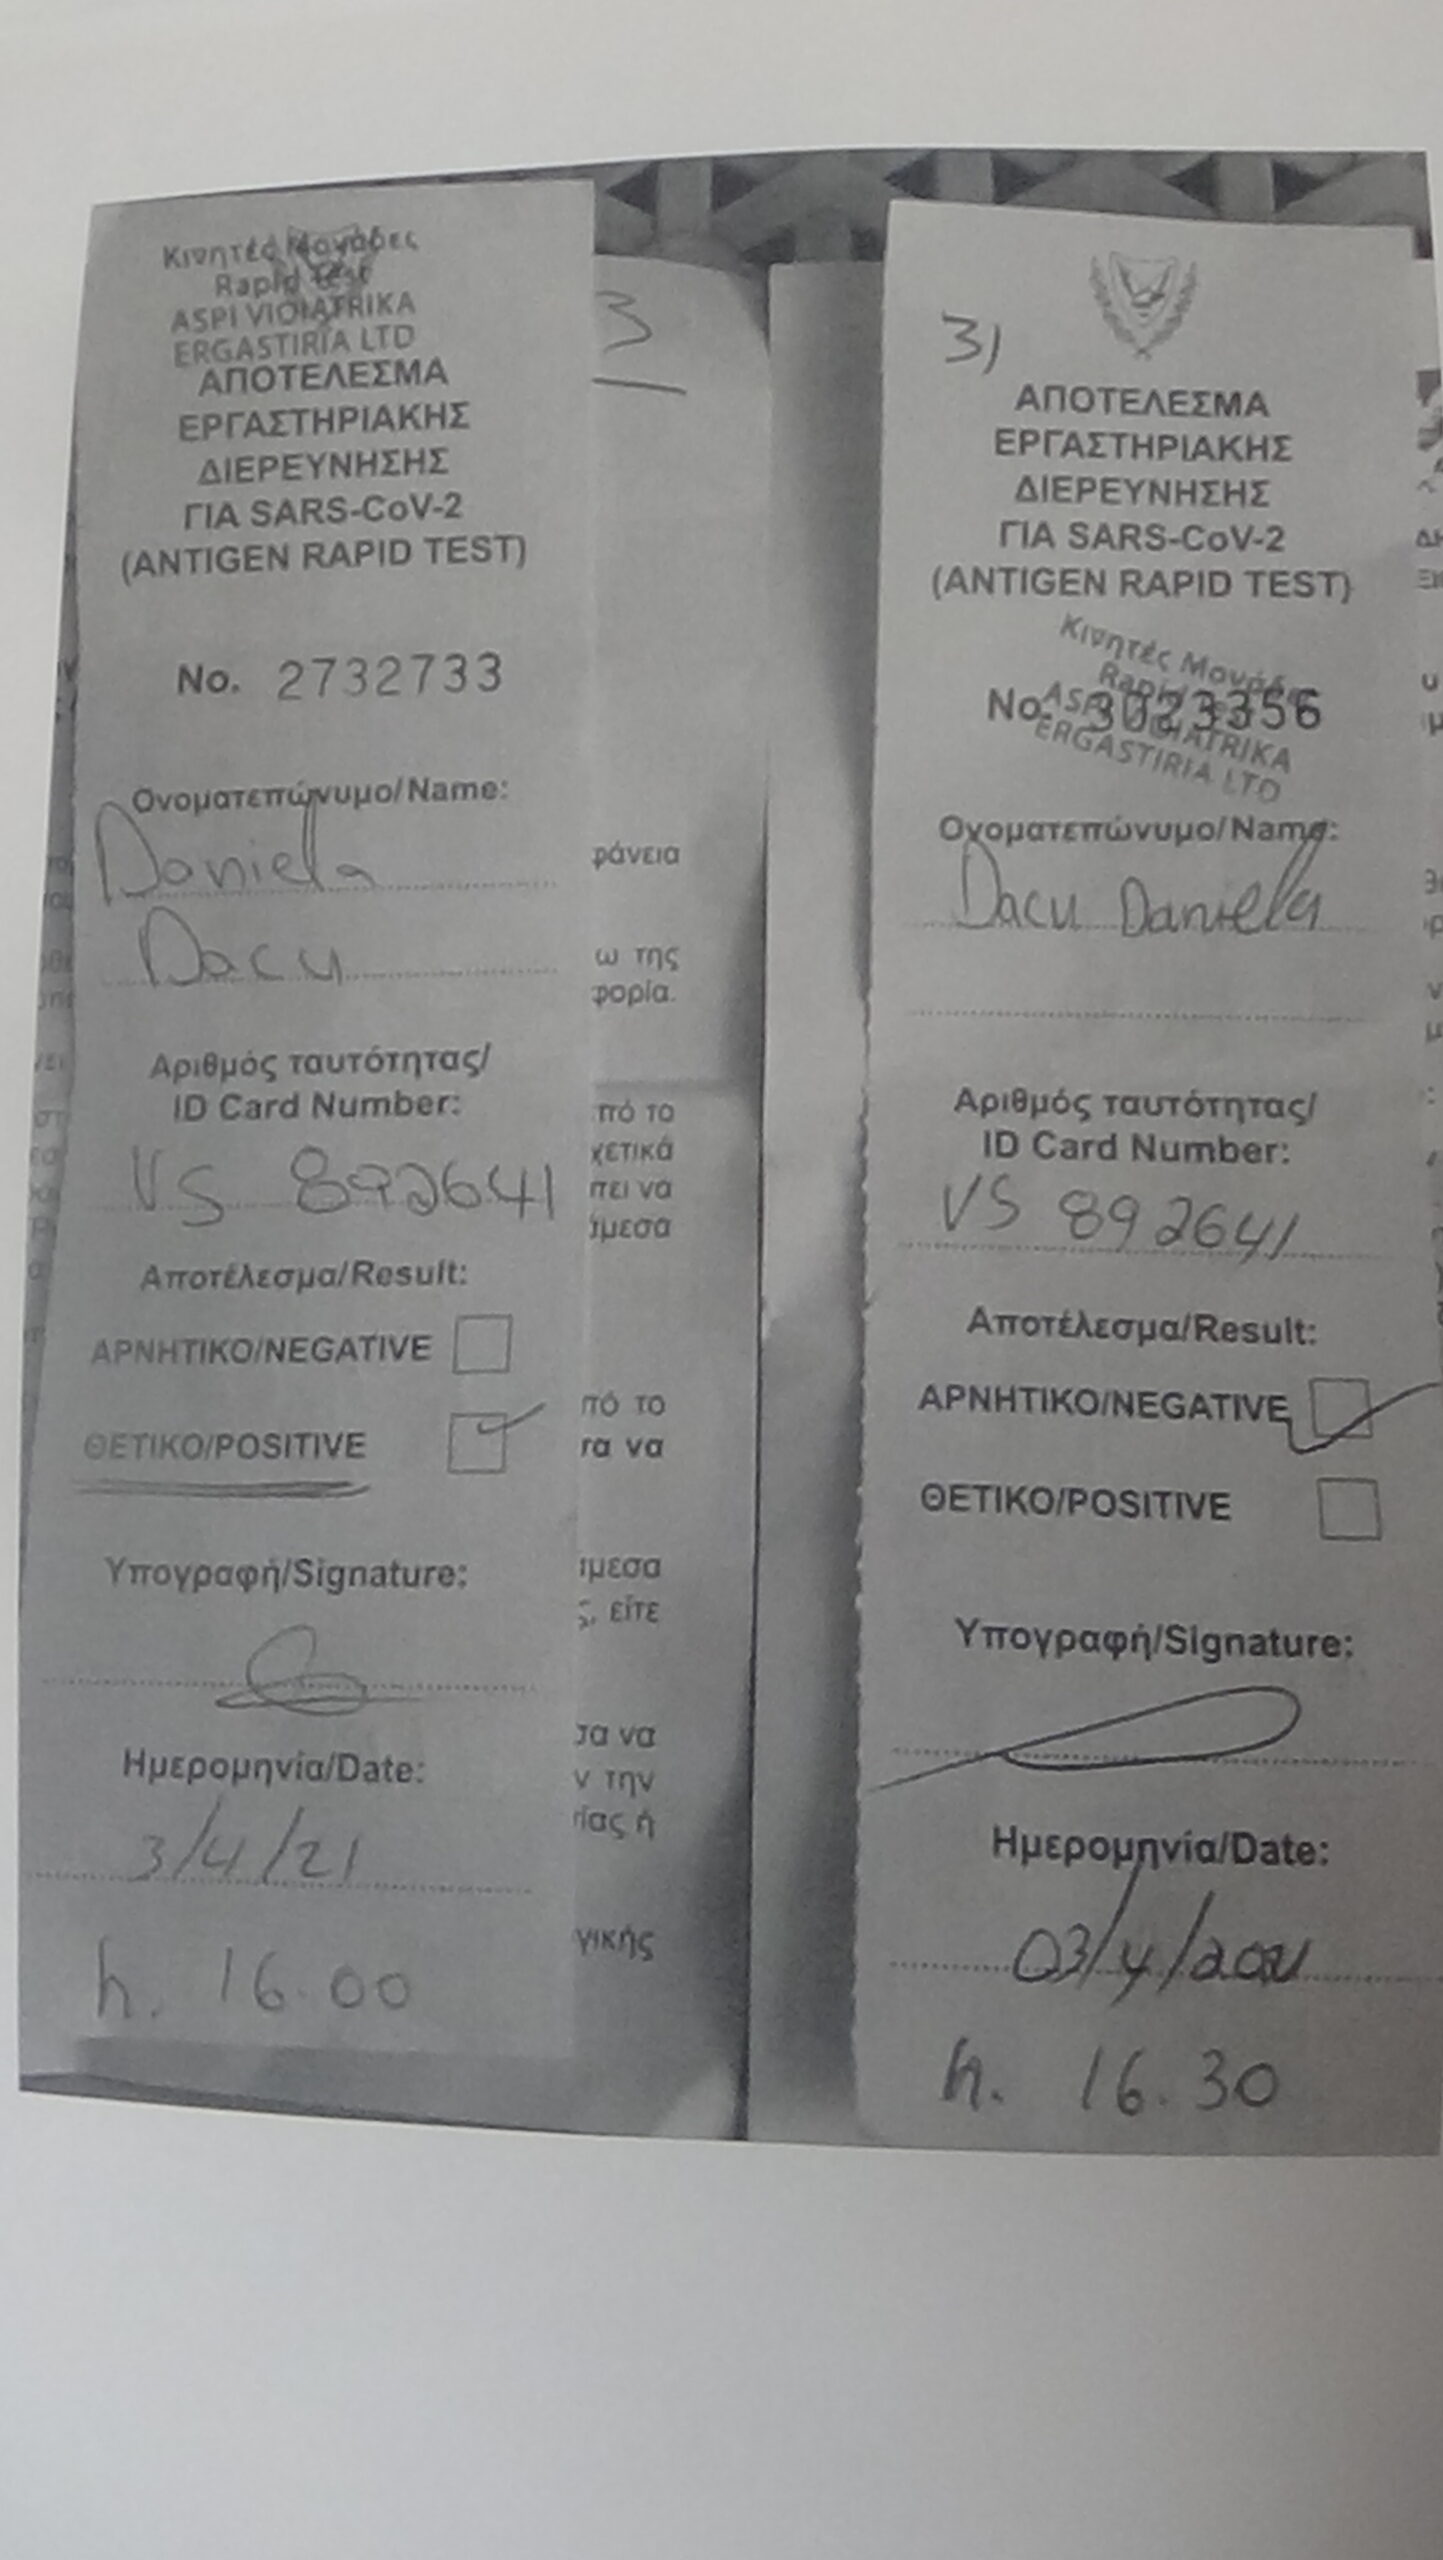 Κινητές Μονάδες
Rapid test
ASPI VIOIATRIKA
ERGASTIRIA LTD
ΑΠΟΤΕΛΕΣΜΑ
ΕΡΓΑΣΤΗΡΙΑΚΗΣ
ΔΙΕΡΕΥΝΗΣΗΣ
ΓΙΑ SARS-CoV-2
(ANTIGEN RAPID TEST)
No. 2732733
Ονοματεπώνυμο/Name:
Daniela
Dacu
Αριθμός ταυτότητας/
ID Card Number:
VS 892641
Αποτέλεσμα/Result:
ΑΡΝΗΤΙΚΟ/NEGATIVE
ΘΕΤΙΚΟ/POSITIVE
Υπογραφή/Signature:
Ημερομηνία/Date:
3/4/21
h. 16.00
3
φάνεια
ω της
φορία.
πό το
χετικά
πει να
άμεσα
πό το
τα να
άμεσα
ς, είτε
σα να
ν την
τίας ή
γικής
3)
ΑΠΟΤΕΛΕΣΜΑ
ΕΡΓΑΣΤΗΡΙΑΚΗΣ
ΔΙΕΡΕΥΝΗΣΗΣ
ΓΙΑ SARS-CoV-2
(ANTIGEN RAPID TEST)
Κινητές Μονάδες
Rapid test
ASPI VIOIATRIKA
ERGASTIRIA LTD
No. 3023356
Ονοματεπώνυμο/Name:
Dacu Daniela
Αριθμός ταυτότητας/
ID Card Number:
VS 892641
Αποτέλεσμα/Result:
ΑΡΝΗΤΙΚΟ/NEGATIVE
ΘΕΤΙΚΟ/POSITIVE
Υπογραφή/Signature:
Ημερομηνία/Date:
03/4/2021
h. 16.30